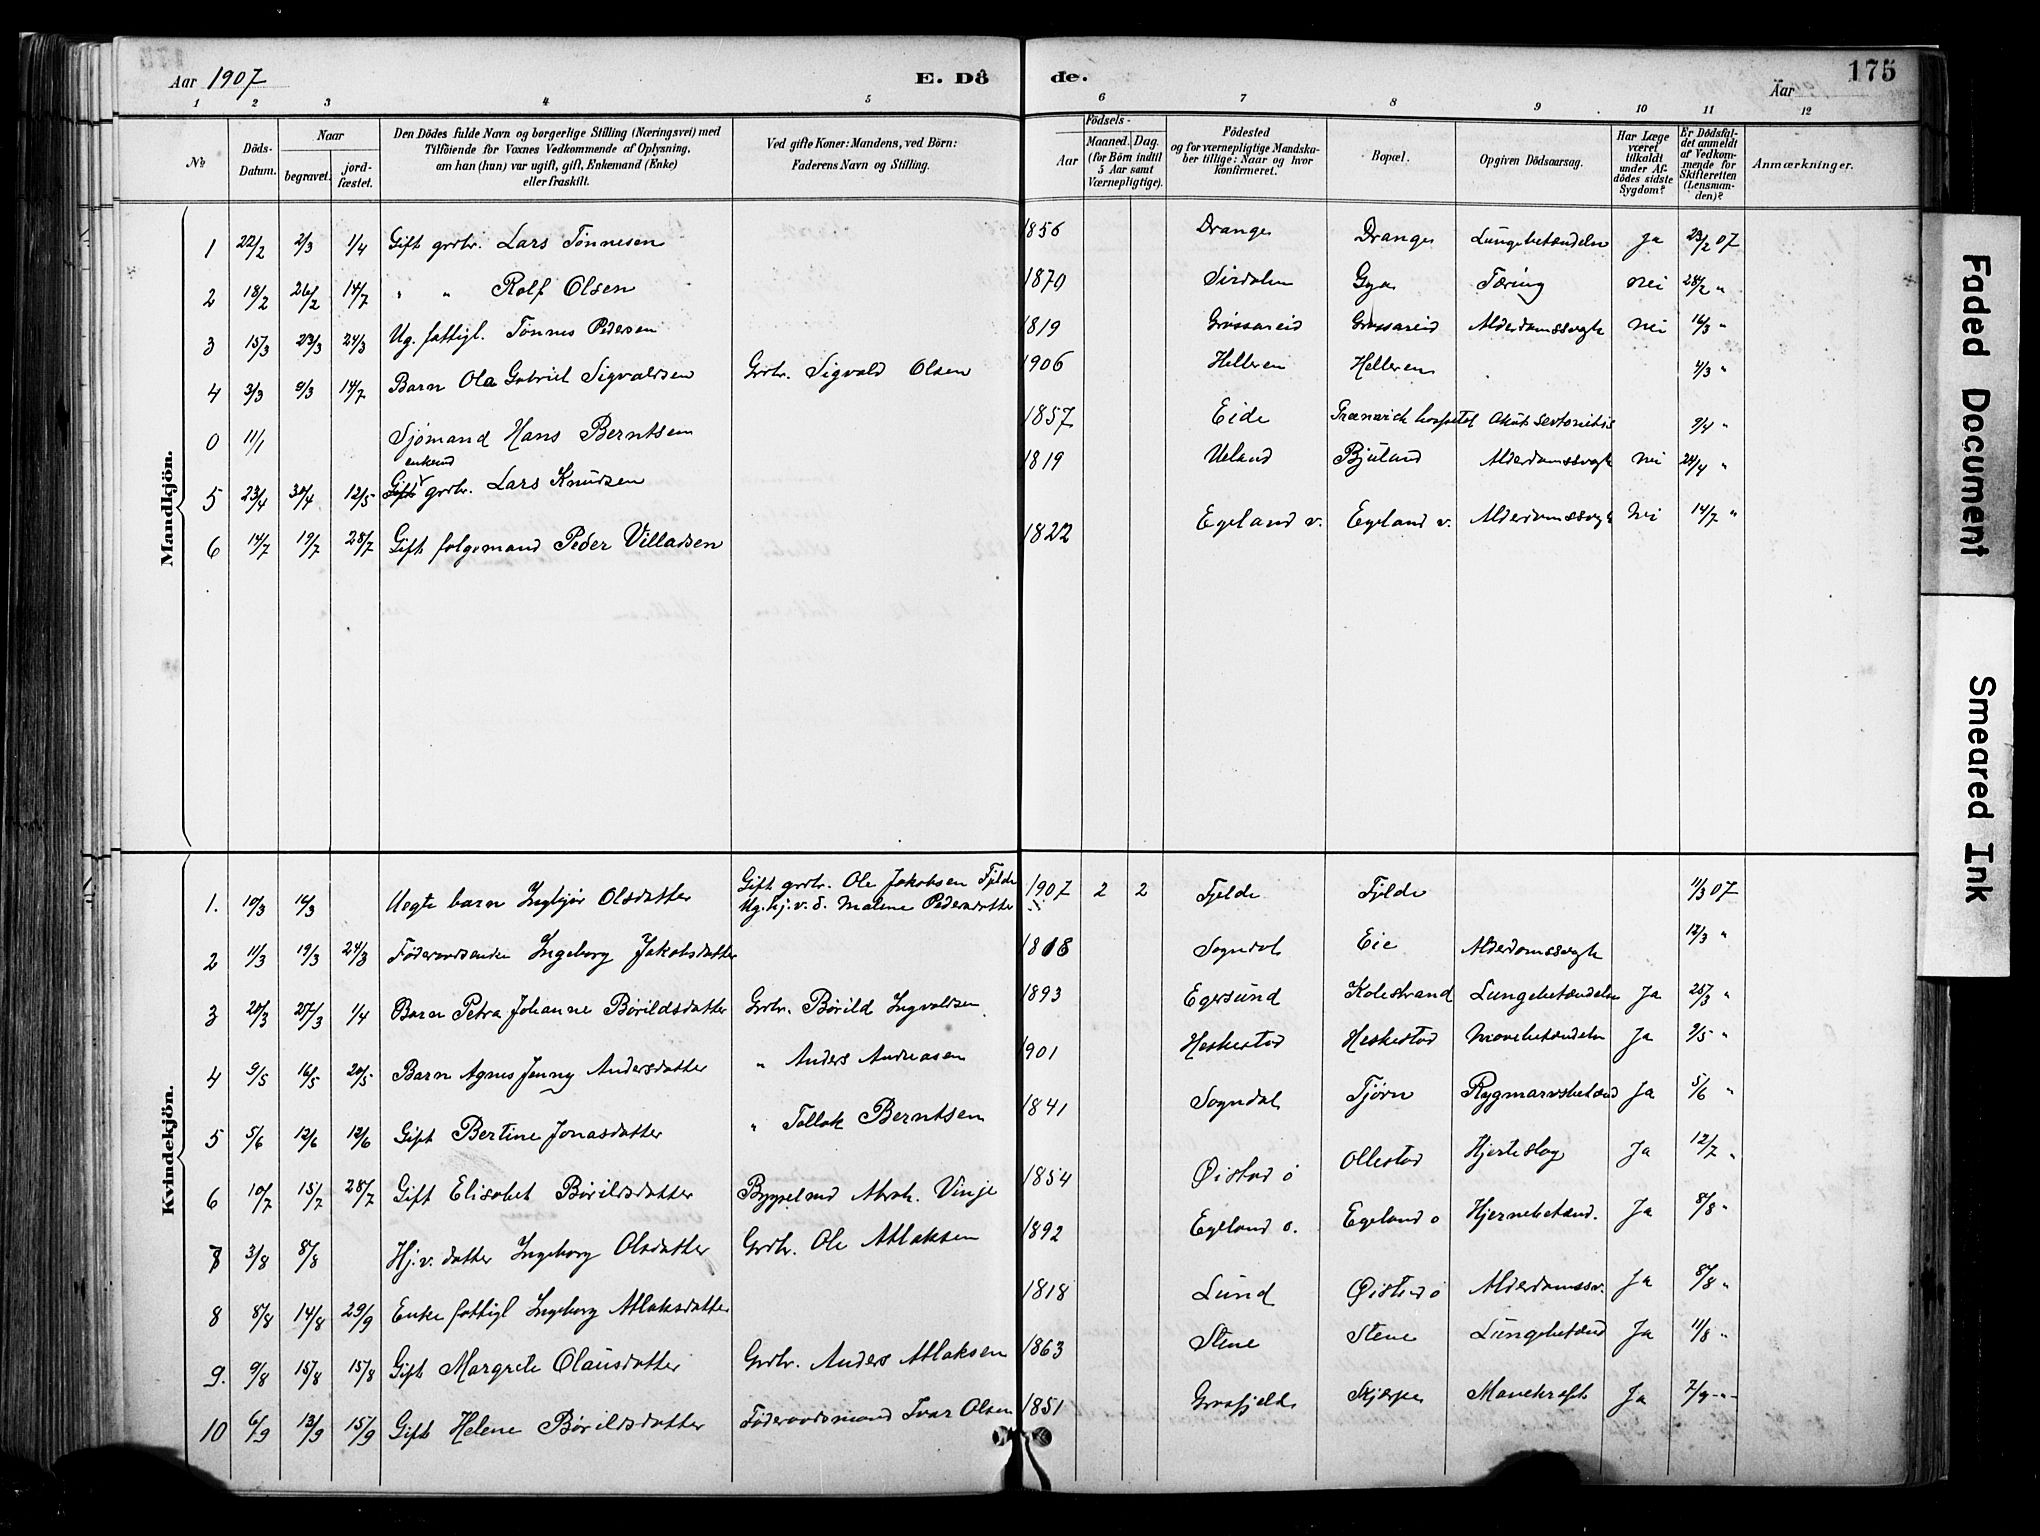 Aar 1907
E. Dö
de.
Aar
175
1 2 3 4 5 6 7 8 9 10 11 12
No
Döds-Datum.
Naar
begravet.
jord-fæstet.
Den Dödes fulde Navn og borgerlige Stilling (Næringsvei) med
Tilföiende for Voxnes Vedkommende af Oplysning,
om han (hun) var ugift, gift, Enkemand (Enke)
eller fraskilt.
Ved gifte Koner: Mandens, ved Börn:
Faderens Navn og Stilling.
Födsels-
Aar
Maaned. Dag.
(for Börn indtil
5 Aar samt
Værnepligtige).
Födested
og for værnepligtige Mandska-
ber tillige: Naar og hvor
konfirmeret.
Bopæl.
Opgiven Dödsaarsag.
Har Læge
været
tilkaldt
under Af-
dödes sidste
Sygdom?
Er Dödsfal-
det anmeldt
af Vedkom-
mende for
Skifteretten
(Lensman-
den)?
Anmærkninger.
Mandkjön.
1 22/2 2/3 1/4 Gift grdbr. Lars Tønnesen 1856 Drange Drange Lungebetændelse Ja 23/2 07
2 18/2 26/2 14/7 " " Rolf Olsen 1870 Sirdalen Gya Tæring nei 28/2 "
3 15/3 23/3 24/3 Ug. fattigl. Tønnes Pedersen 1819 Grøssareid Grøssareid Alderdomssvagh nei 16/3 "
4 3/3 9/3 14/7 Barn Ola Gabriel Sigvaldsen Grdbr. Sigvald Olsen 1906 Helleren Helleren 4/3 "
0 11/1 Sjømand Hans Berntsen 1857 Eide 9/4 "
5 23/4 30/4 12/5 enkemd Gift grdbr. Lars Knudsen 1819 Ueland Bjuland Alderdomssvagh nei 24/4 "
6 14/7 19/7 28/7 Gift følgemand Peder Villadsen 1822 Egeland v. Egeland v. Alderdomssvagh nei 14/7 "
Kvindekjön.
1. 10/3 16/3 Uegte barn Ingbjør Olsdatter Gift grdbr. Ole Jakobsen Fjelde
Ug. hj.v.d. Malene Pedersdatter 1907 2 2 Fjelde Fjelde 11/3 07
2 11/3 19/3 24/3 Føderaadsenke Ingeborg Jakobsdatter 1818 Sogndal Eie Alderdomssvagh 12/3 "
3 20/3 27/3 1/4 Barn Petra Johanne Børildsdatter Grdbr. Børild Ingvaldsen 1893 Egersund Kolestrand Lungebetændelse Ja 25/3 "
4 9/5 16/5 20/5 Barn Agnes Jenny Andersdatter " Anders Andreasen 1901 Heskestad Heskestad Mavebetændeln Ja 9/5 "
5 5/6 12/6 12/6 Gift Bertine Jonasdatter " Tollak Berntsen 1841 Sogndal Tjørn Rygmarvsbetænd Ja 5/6 "
6 10/7 15/7 28/7 Gift Elisabet Børildsdatter Byggelmd Abrah. Vinje 1854 Øistad ø Ollestad Hjerteslag Ja 12/7 "
7 3/8 8/8 Hj.v. datter Ingeborg Olsdatter Grdbr. Ole Atlaksen 1892 Egeland ø. Egeland ø Hjernebetænd. Ja 8/8 "
8 8/8 14/8 29/9 Enke fattigl Ingeborg Atlaksdatter 1818 Lund Øistad ø Alderdomssv. Ja 8/8 "
9. 9/8 15/8 15/8 Gift Margrete Olausdatter Grdbr. Anders Atlaksen 1863 Stene Stene Lungebetænd Ja 11/8 "
10 6/9 13/9 15/9 Gift Helene Børildsdatter Føderaadsmand Ivar Olsen 1851 Skjerpe Mavekræft Ja 7/9 "
Faded Document
Smeared Ink